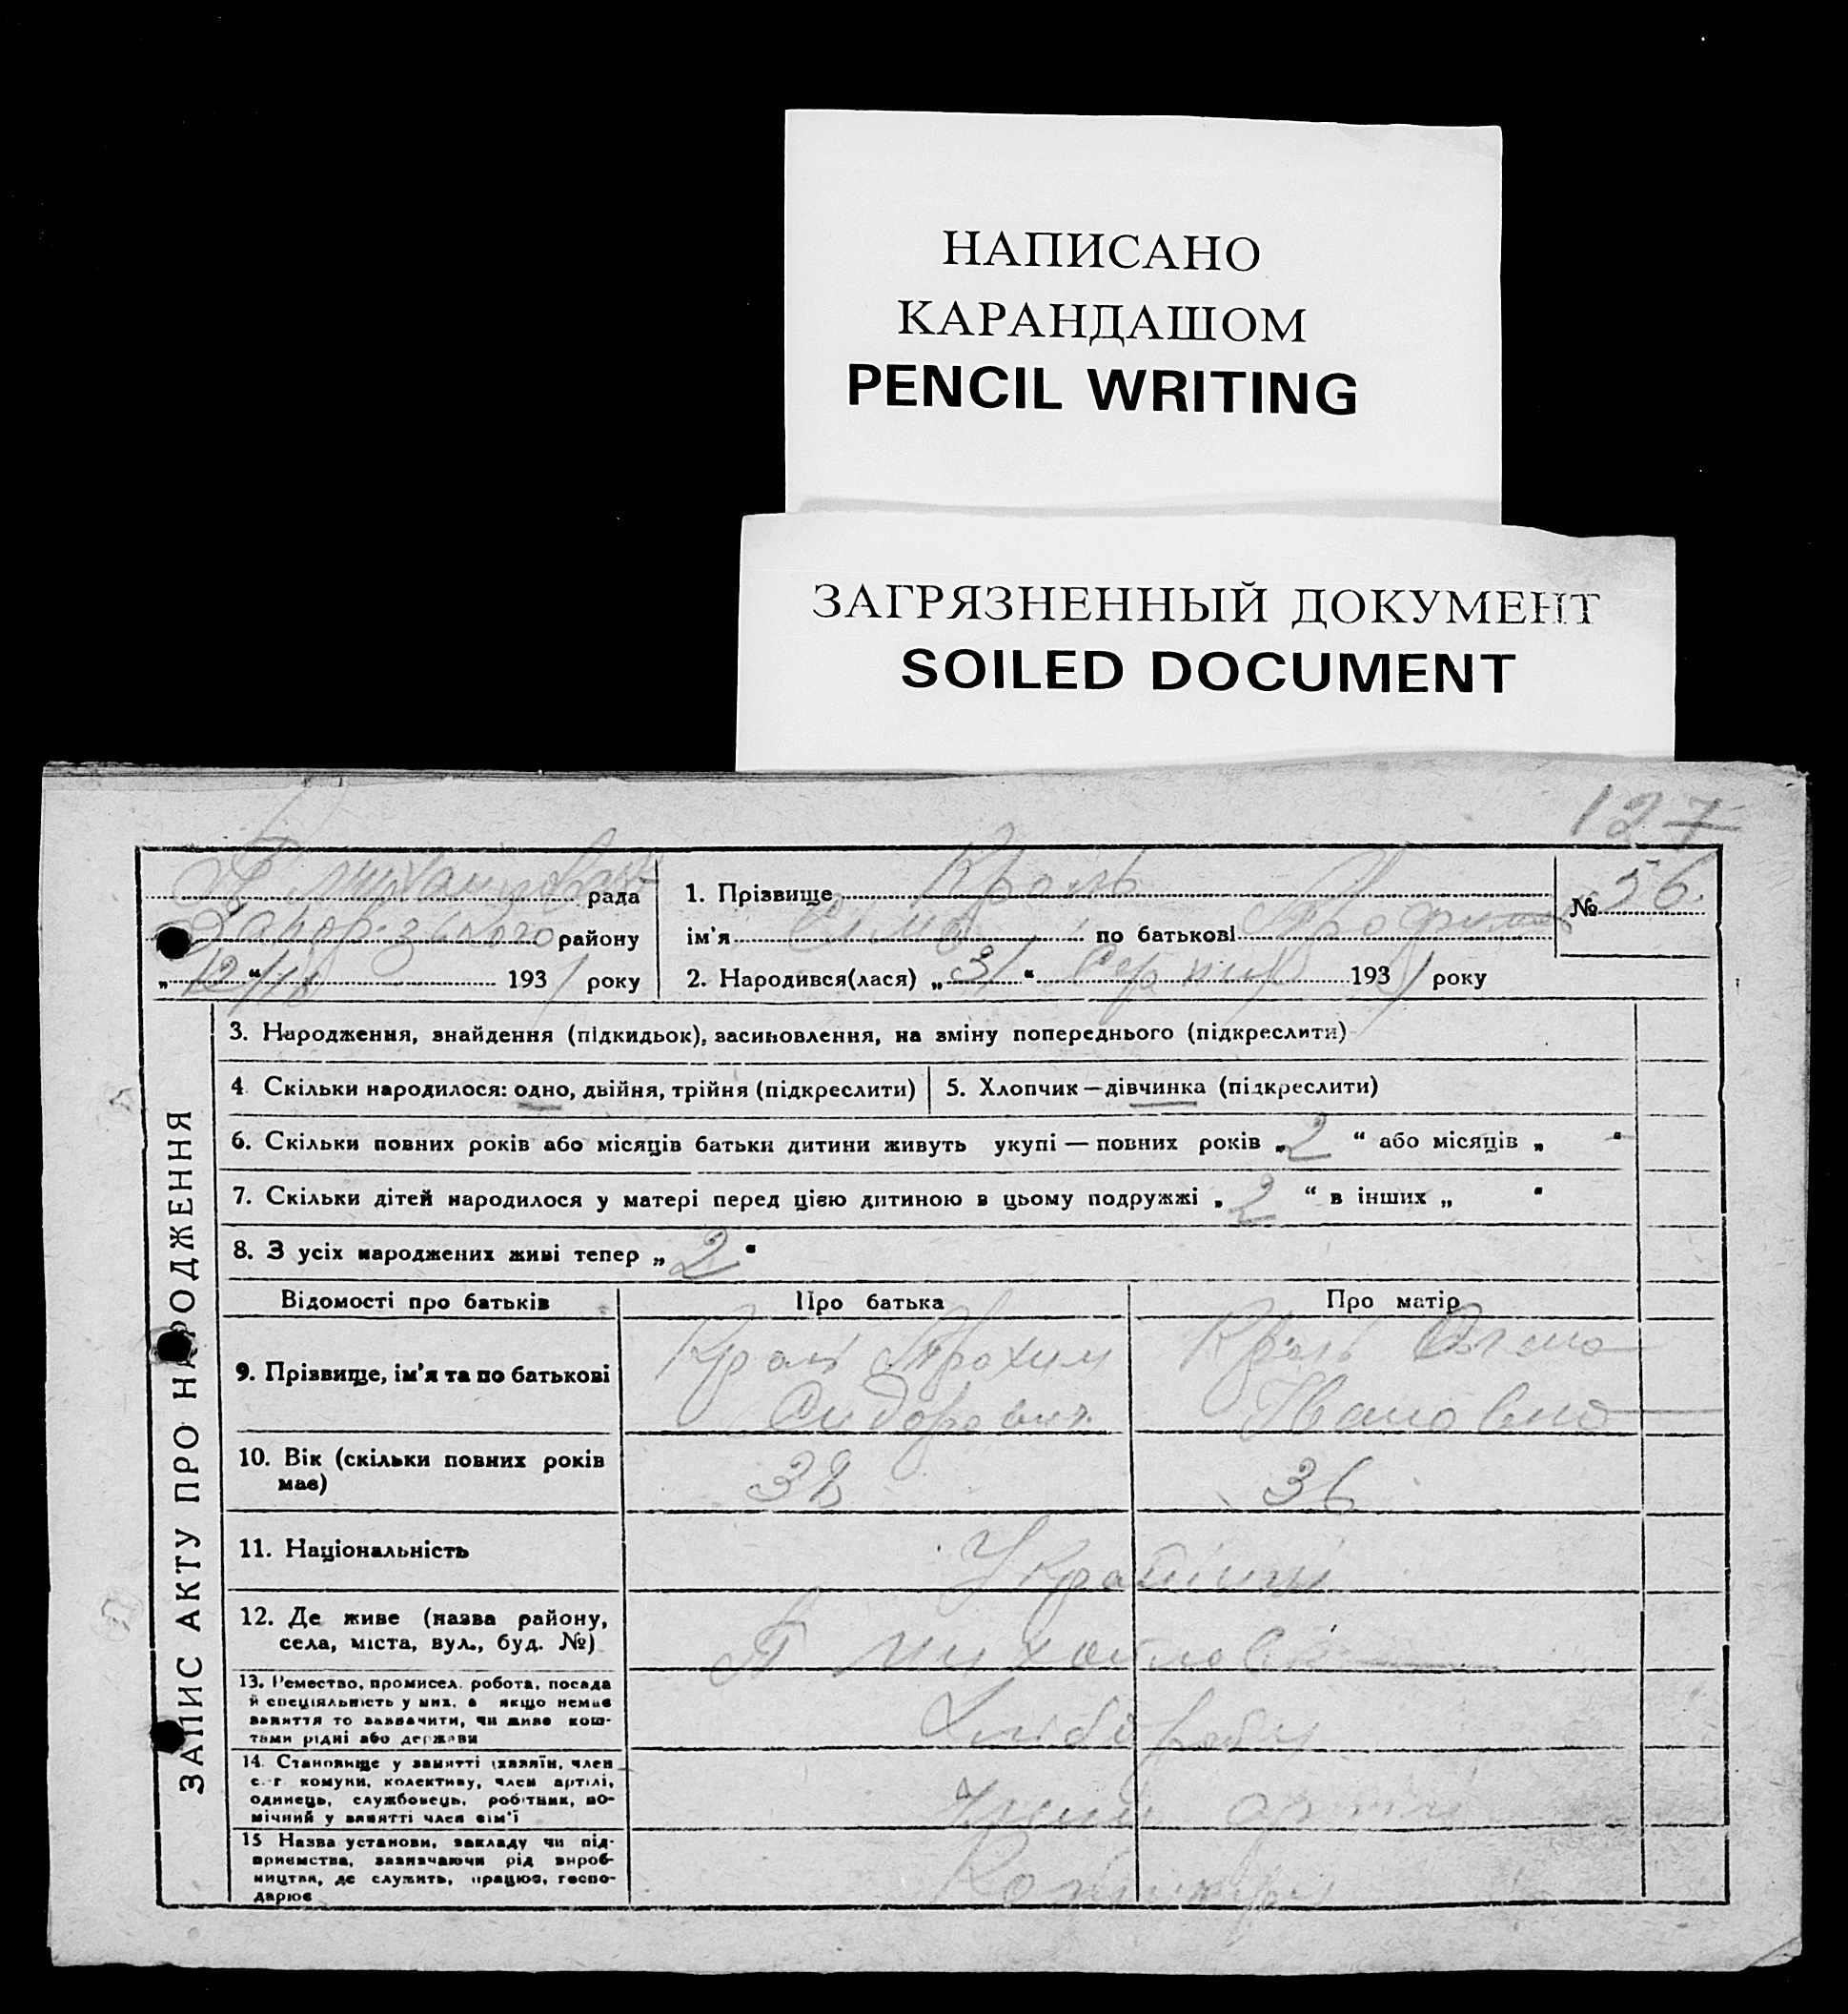 НАПИСАНО
КАРАНДАШОМ
PENCIL WRITING
ЗАГРЯЗНЕННЫЙ ДОКУМЕНТ
SOILED DOCUMENT
127
рада
району
„12“ 1931 року
1. Прізвище Кроль
ім’я по батькові
2. Народився(лася) „31“ 1931 року
№ 56.
ЗАПИС АКТУ ПРО НАРОДЖЕННЯ
3. Народження, знайдення (підкидьок), засиновлення, на зміну попереднього (підкреслити)
4 Скільки народилося: одно, двійня, трійня (підкреслити)
5. Хлопчик — дівчинка (підкреслити)
6. Скільки повних років або місяців батьки дитини живуть укупі — повних років „2“ або місяців „ “
7. Скільки дітей народилося у матері перед цією дитиною в цьому подружжі „2“ в інших „ “
8. З усіх народжених живі тепер „2“
Відомості про батьків Про батька Про матір
9. Прізвище, ім’я та по батькові
Кроль Трохим
Сидорович
Кроль
Івановна
10. Вік (скільки повних років
має)
36
11. Національність
Українці
12. Де живе (назва району,
села, міста, вул., буд. №)
13. Ремество, промисел. робота, посада
й спеціяльність у них, а якщо немає
заняття то зазначити, чи живе кош-
тами рідні або держави
Хлібороби
14. Становище у занятті (хазяїн, член
с.-г. комуни, колективу, член артілі,
одинець, службовець, робітник, по-
мічний у занятті член сім’ї
15 Назва установи, закладу чи під-
приємства, зазначаючи рід вироб-
ництва, де служить, працює, госпо-
дарює